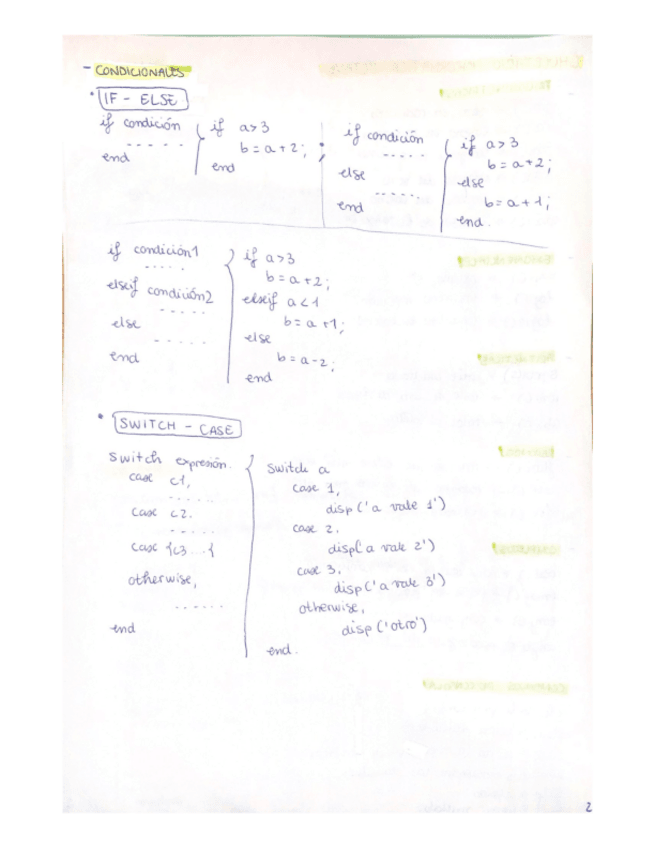 - CONDICIONALES
• IF - ELSE
if condición
- - - - -
end
if a>3
b = a + 2;
end
;
if condición
- - - - -
else
- - - - -
end
if a>3
b = a + 2;
else
b = a + 1;
end.
if condición1
- - - - -
elseif condición2
- - - - -
else
- - - - -
end
if a>3
b = a + 2;
elseif a<1
b = a + 1;
else
b = a - 2;
end
• SWITCH - CASE
switch expresión.
case c1,
- - - - - -
case c2.
- - - - - -
case {c3....{
otherwise,
- - - - - -
end
switch a
case 1,
disp('a vale 1')
case 2.
disp('a vale 2')
case 3.
disp('a vale 3')
otherwise,
disp('otro')
end.
2